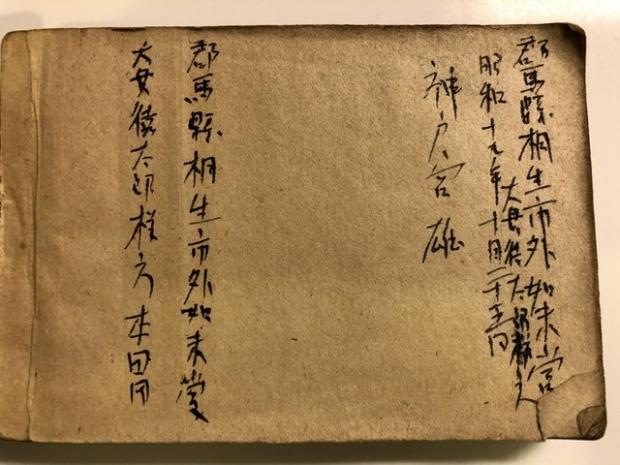 郡馬縣桐生市外如来堂
太郎様方
昭和十九年十月二十五日
神戸宮雄
郡馬縣桐生市外如来堂
太郎様方 本田